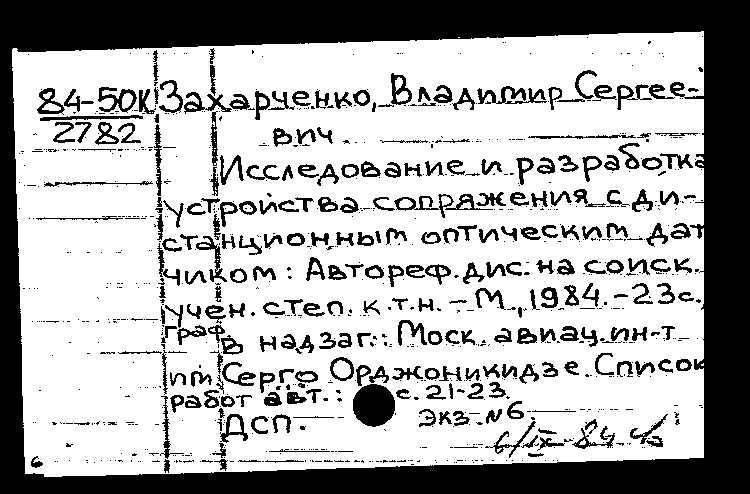 84-50К Захарченко, Владимир Сергее-
2782 вич.
Исследование и разработка
устройства сопряжения с ди-
станционным оптическим дат
чиком: Автореф. дис. на соиск.
учен. степ. к.т.н. – М., 1984. – 23с.,
граф.
в надзаг.: Моск. авиац. ин-т
им. Серго Орджоникидзе. Список
работ авт.: с. 21-23.
ДСП. Экз. №6.
6/IX-84
6